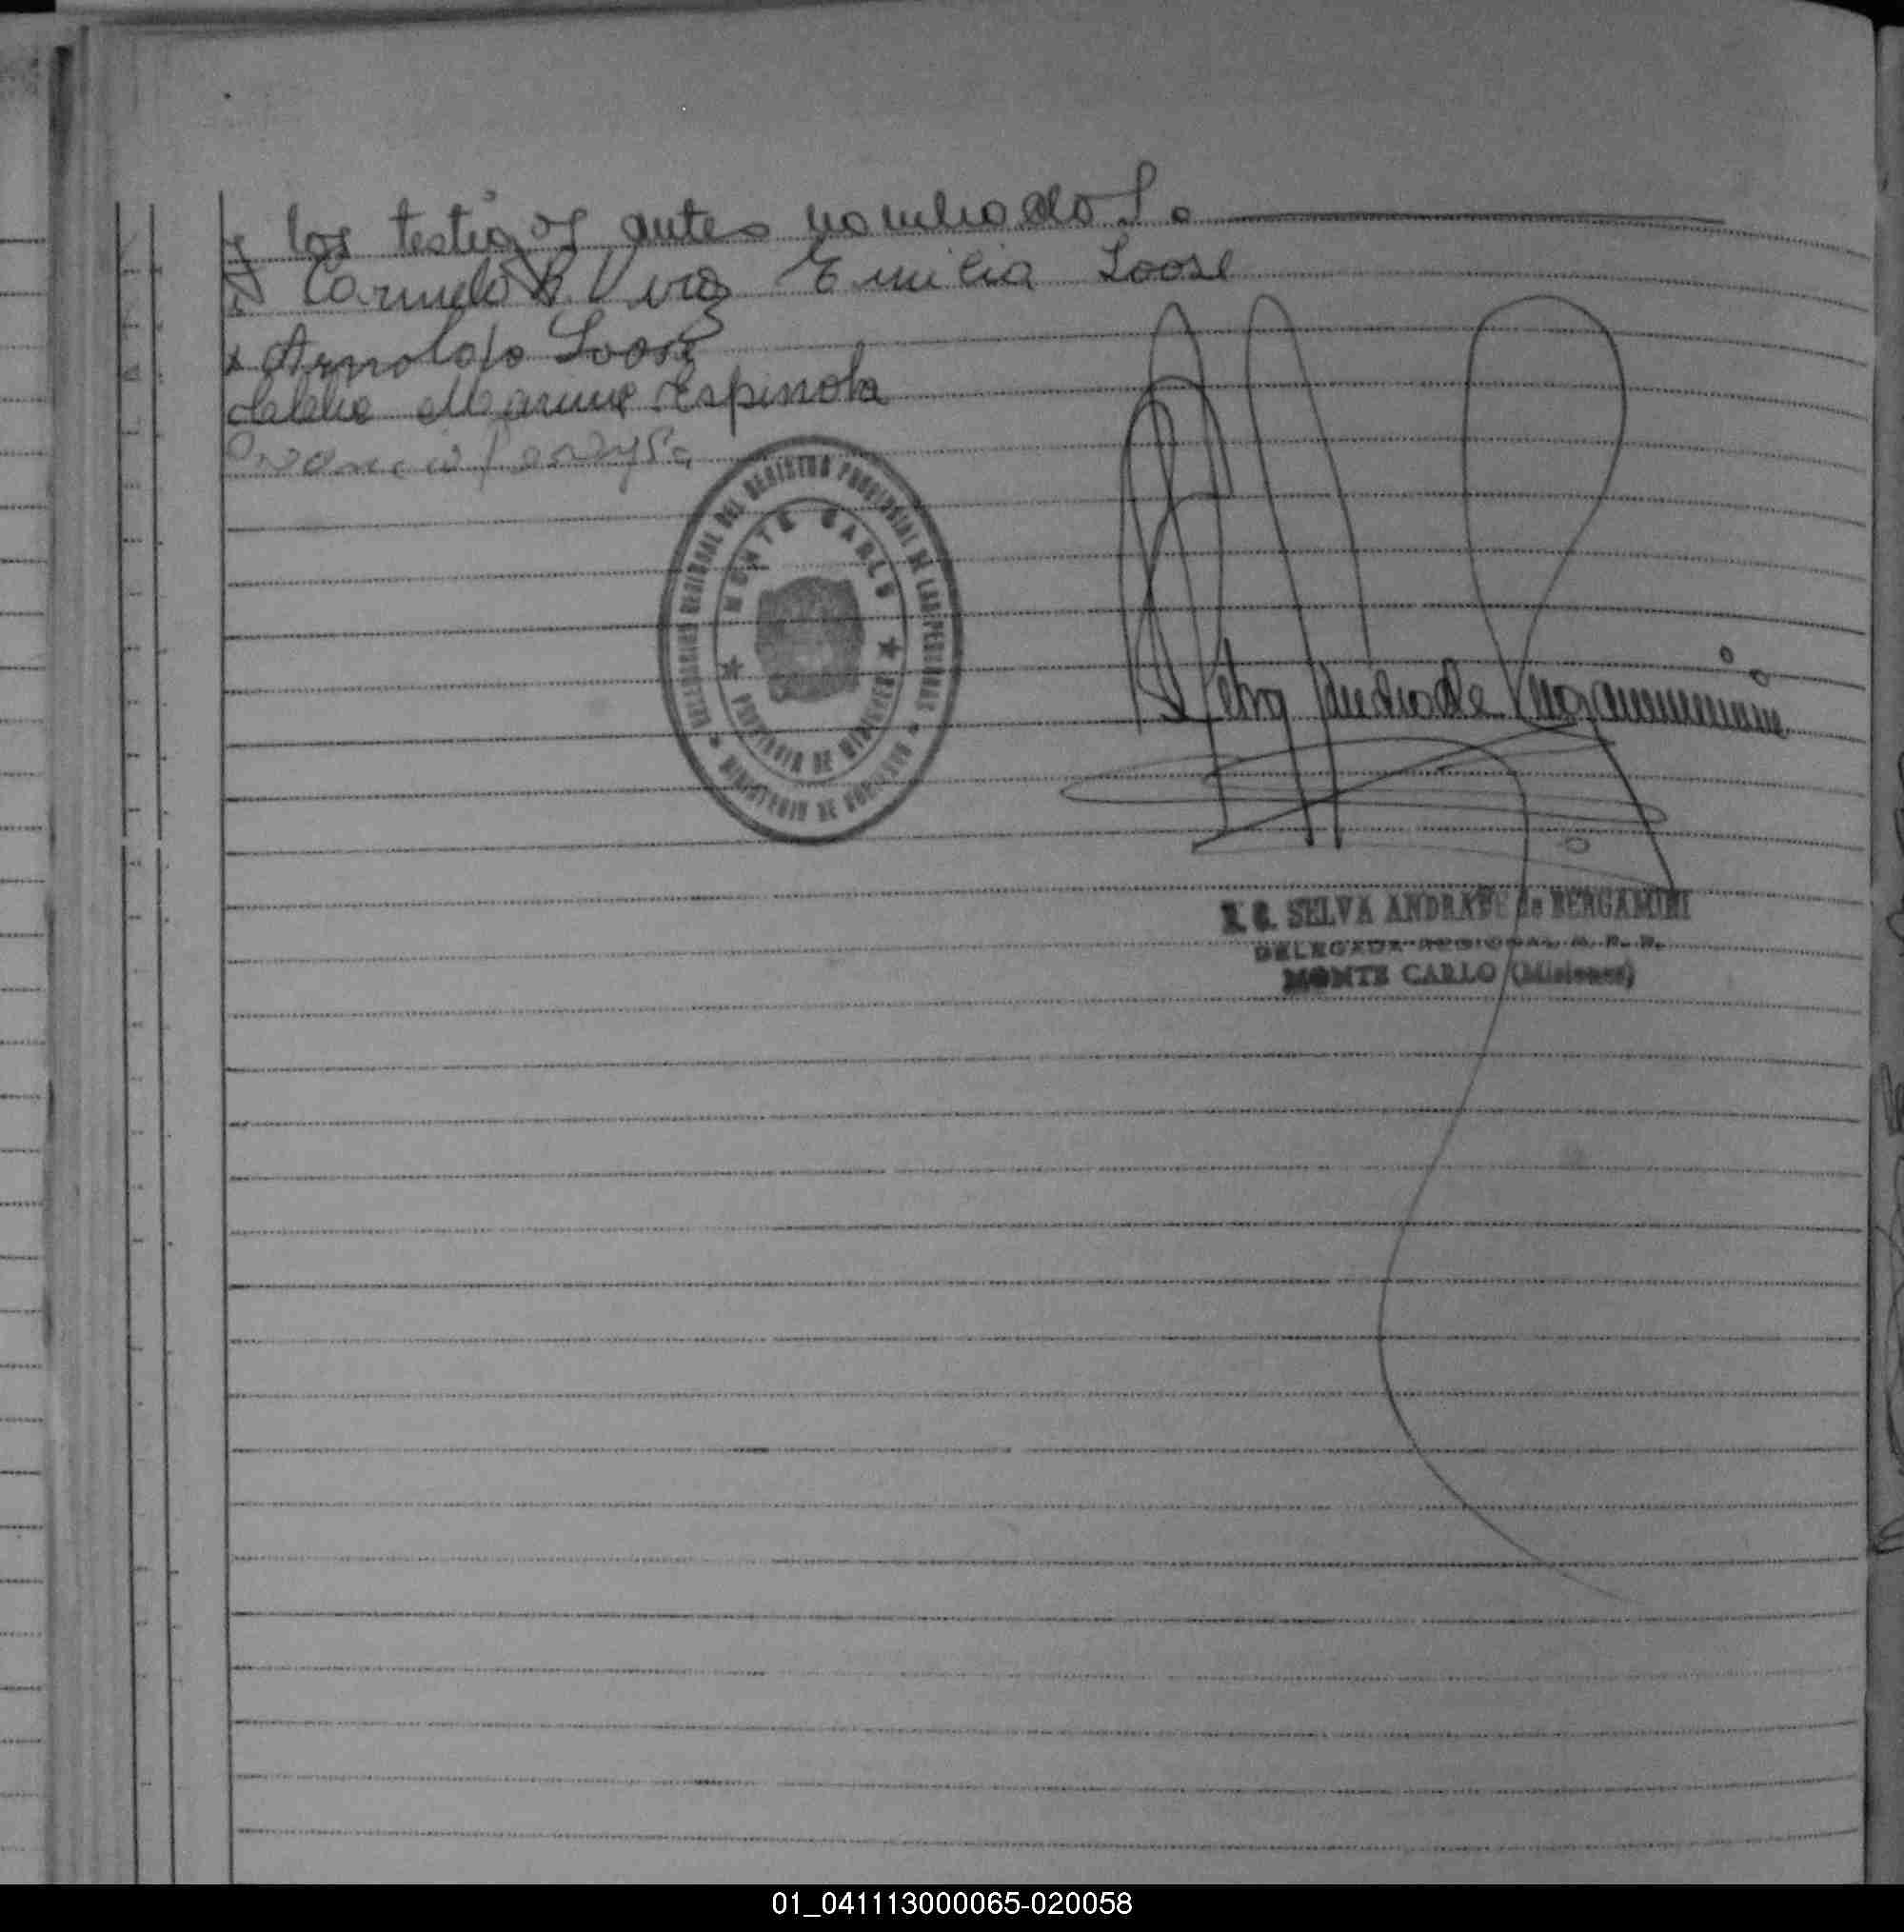 y los testigos antes nombrados.
x Carmelo B. Vera Emilia Loose
x Arnoldo Loose
Marina Espinola
DELEGACION REGIONAL DEL REGISTRO PROVINCIAL DE LAS PERSONAS
MONTE CARLO
PROVINCIA DE MISIONES
MINISTERIO DE GOBIERNO
Selva Andrade
SELVA ANDRADE de BERGAMINI
DELEGADA REGIONAL R. P. P.
MONTE CARLO (Misiones)
01_041113000065-020058